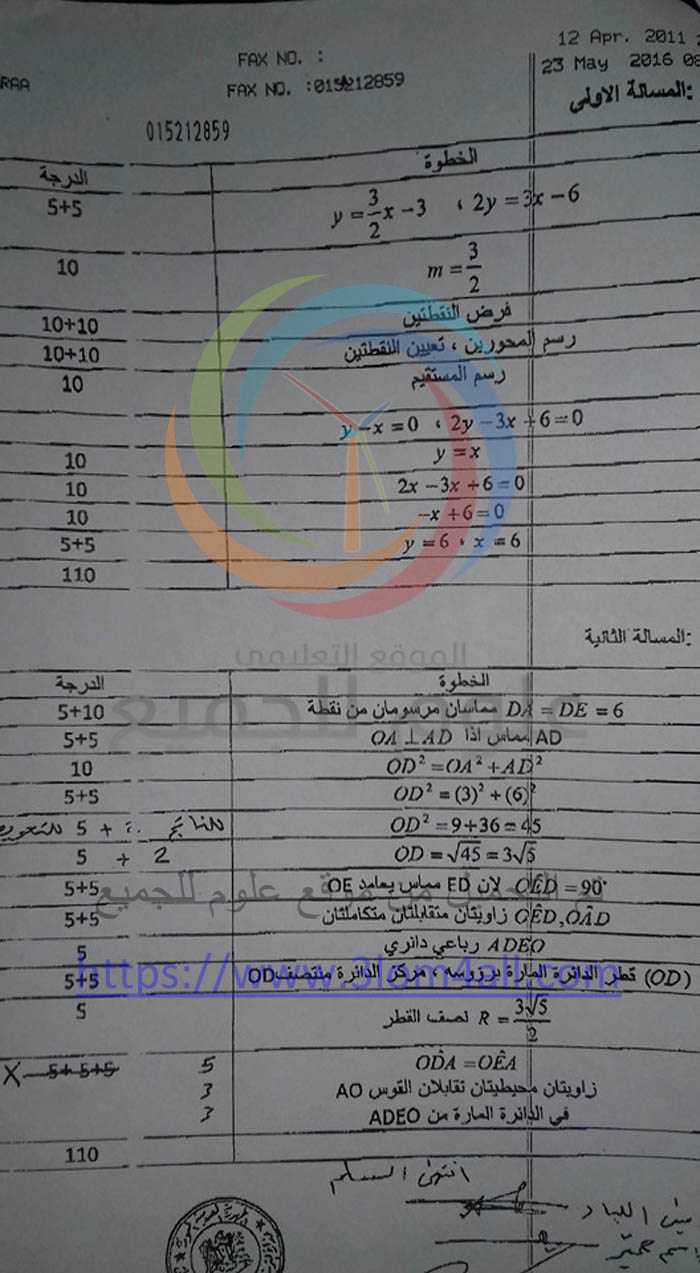 12 Apr. 2011
FAX NO. :
23 May 2016 08
RAA
FAX NO. :015212859
المسالة الاولى:
015212859
الخطوة الدرجة
2y = 3x − 6 ، y = 3/2 x − 3 5+5
m = 3/2 10
فرض النقطتين 10+10
رسم المحورين ، تعيين النقطتين 10+10
رسم المستقيم 10
2y − 3x + 6 = 0 ، y − x = 0
y = x 10
2x − 3x + 6 = 0 10
−x + 6 = 0 10
x = 6 ، y = 6 5+5
110
الموقع التعليمي
علوم للجميع
المسالة الثانية:
الخطوة الدرجة
DA = DE = 6 مماسان مرسومان من نقطة 5+10
AD مماس اذا OA ⊥ AD 5+5
OD² = OA² + AD² 10
OD² = (3)² + (6)² 5+5
OD² = 9 + 36 = 45 للناتج + 5
OD = √45 = 3√5 5 + 2
OÊD = 90° لان ED مماس يعامد OE 5+5
تم التحميل من موقع علوم للجميع
OÊD, OÂD زاويتان متقابلتان متكاملتان 5+5
ADEO رباعي دائري 5
https://www.3lom4all.com
(OD) قطر الدائرة المارة برؤوسه ، مركز الدائرة منتصف OD 5+5
R = 3√5/2 نصف القطر 5
OD̂A = OÊA 5 5+5+5 X
زاويتان محيطيتان تقابلان القوس AO 3
في الدائرة المارة من ADEO 3
110
انتهى السلم